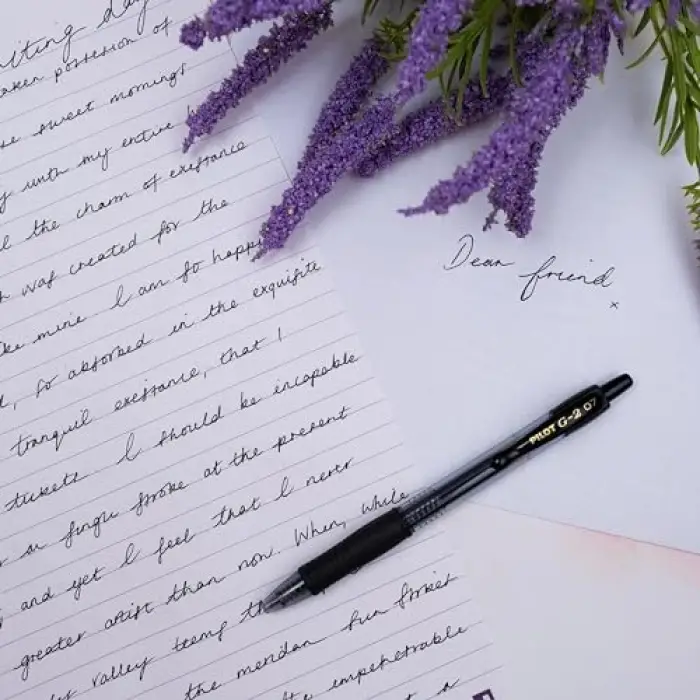 writing day
taken possession of
sweet mornings
with my entire
the charm of existance
was created for the
like mine I am so happy
so absorbed in the exquisite
tranquil existance, that I
tickets I should be incapable
a single stroke at the present
and yet I feel that I never
greater artist than now. When, while
valley teems
the meridan sun strikes
the impenetrable
a
Dear friend
x
PILOT G-2 07